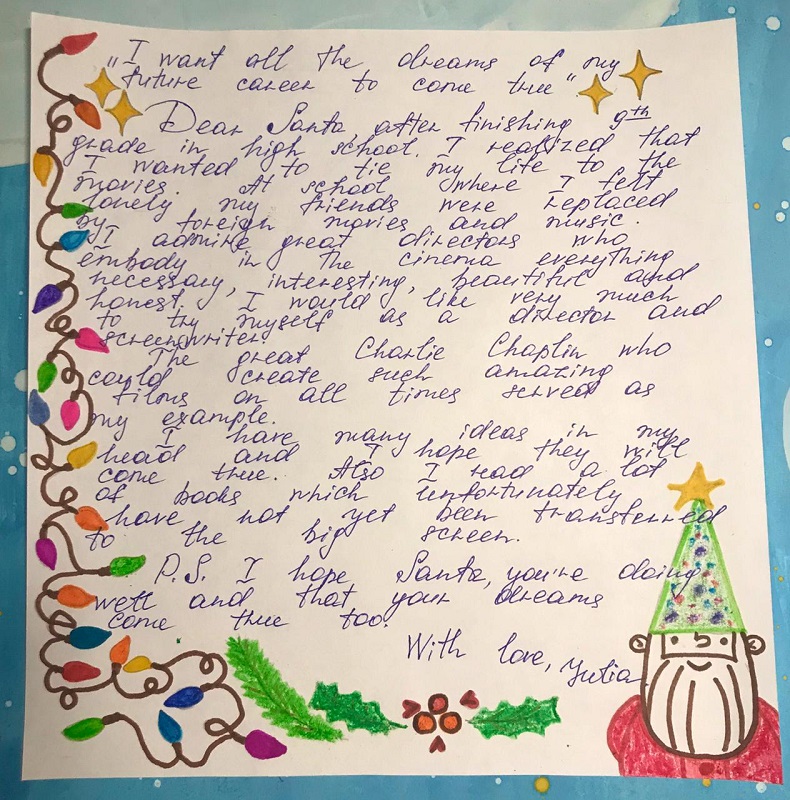 „I want all the dreams of my
future career to come true"
Dear Santa, after finishing 9th
grade in high school. I realized that
I wanted to tie my life to the
movies. At school where I felt
lonely my friends were replaced
by foreign movies and music.
I admire great directors who
embody in the cinema everything
necessary, interesting, beautiful and
honest. I would like very much
to try myself as a director and
screenwriter.
The great Charlie Chaplin who
could create such amazing
films on all times served as
my example.
I have many ideas in my
head and I hope they will
come true. Also I read a lot
of books which unfortunately
have not yet been transferred
to the big screen.
P.S. I hope Santa, you're doing
well and that your dreams
come true too.
With love, Yulia.